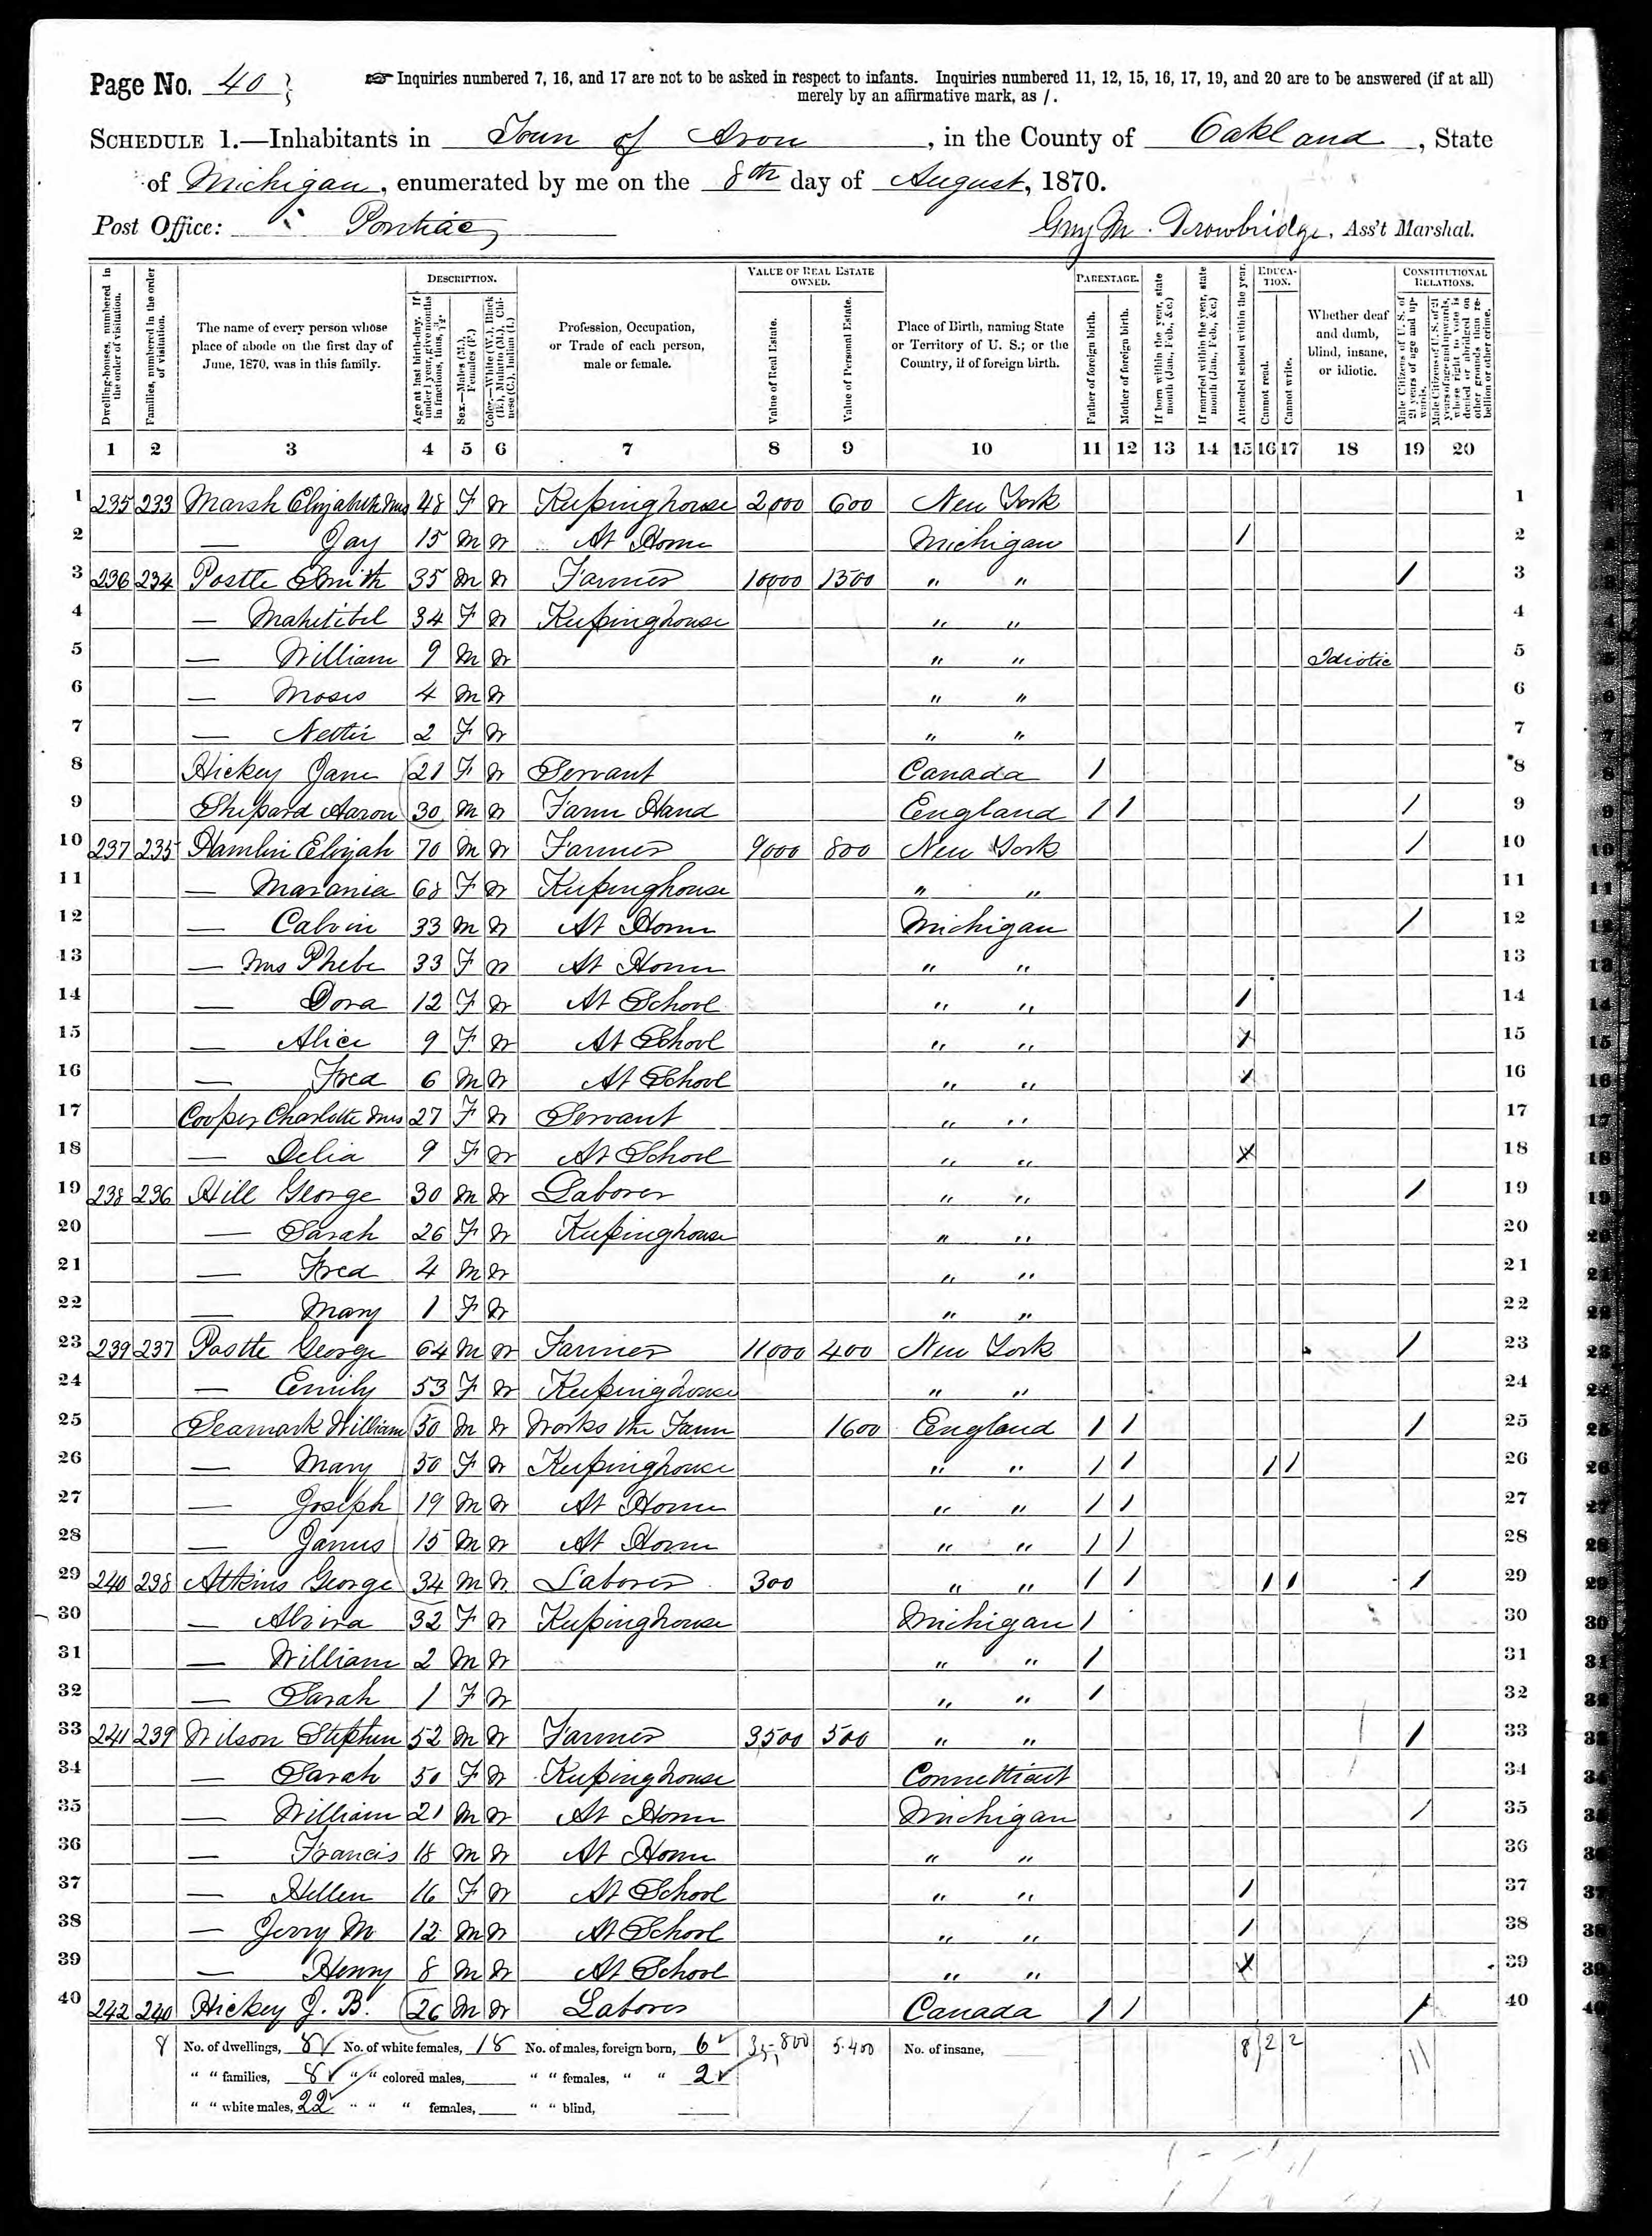 Page No. 40
☞ Inquiries numbered 7, 16, and 17 are not to be asked in respect to infants. Inquiries numbered 11, 12, 15, 16, 17, 19, and 20 are to be answered (if at all)
merely by an affirmative mark, as /.
SCHEDULE 1.—Inhabitants in Town of Avon, in the County of Oakland, State
of Michigan, enumerated by me on the 8th day of August, 1870.
Post Office: Pontiac
Guy M. Trowbridge, Ass't Marshal.
DESCRIPTION. VALUE OF REAL ESTATE OWNED. PARENTAGE. EDUCATION. CONSTITUTIONAL RELATIONS.
Dwelling-houses, numbered in the order of visitation. Families, numbered in the order of visitation. The name of every person whose place of abode on the first day of June, 1870, was in this family. Age at last birth-day. If under 1 year, give months in fractions, thus, 3/12. Sex.—Males (M.), Females (F.) Color.—White (W.), Black (B.), Mulatto (M.), Chinese (C.), Indian (I.) Profession, Occupation, or Trade of each person, male or female. Value of Real Estate. Value of Personal Estate. Place of Birth, naming State or Territory of U. S.; or the Country, if of foreign birth. Father of foreign birth. Mother of foreign birth. If born within the year, state month (Jan., Feb., &c.) If married within the year, state month (Jan., Feb., &c.) Attended school within the year. Cannot read. Cannot write. Whether deaf and dumb, blind, insane, or idiotic. Male Citizens of U. S. of 21 years of age and upwards. Male Citizens of U. S. of 21 years of age and upwards, whose right to vote is denied or abridged on other grounds than rebellion or other crime.
1 2 3 4 5 6 7 8 9 10 11 12 13 14 15 16 17 18 19 20
1 235 233 Marsh Elizabeth Mrs 48 F W Keepinghouse 2000 600 New York 1
2 — Jay 15 M W At Home Michigan / 2
3 236 234 Postle Smith 35 M W Farmer 10000 1300 " " / 3
4 — Mahetibel 34 F W Keepinghouse " " 4
5 — William 9 M W " " Idiotic 5
6 — Moses 4 M W " " 6
7 — Nettie 2 F W " " 7
8 Hickey Jane 21 F W Servant Canada / 8
9 Shepard Aaron 30 M W Farm Hand England / / / 9
10 237 235 Hamlin Elijah 70 M W Farmer 9000 800 New York / 10
11 — Marania 68 F W Keepinghouse " " 11
12 — Calvin 33 M W At Home Michigan / 12
13 — Mrs Phebe 33 F W At Home " " 13
14 — Dora 12 F W At School " " / 14
15 — Alice 9 F W At School " " / 15
16 — Fred 6 M W At School " " / 16
17 Cooper Charlotte Mrs 27 F W Servant " " 17
18 — Delia 9 F W At School " " / 18
19 238 236 Hill George 30 M W Laborer " " / 19
20 — Sarah 26 F W Keepinghouse " " 20
21 — Fred 4 M W " " 21
22 — Mary 1 F W " " 22
23 239 237 Postle George 64 M W Farmer 11000 400 New York / 23
24 — Emily 53 F W Keepinghouse " " 24
25 Seamark William 50 M W Works the Farm 1600 England / / / 25
26 — Mary 50 F W Keepinghouse " " / / / / 26
27 — Joseph 19 M W At Home " " / / 27
28 — James 15 M W At Home " " / / 28
29 240 238 Atkins George 34 M W Laborer 300 " " / / / / / 29
30 — Alvira 32 F W Keepinghouse Michigan / 30
31 — William 2 M W " " / 31
32 — Sarah 1 F W " " / 32
33 241 239 Wilson Stephen 52 M W Farmer 3500 500 " " / 33
34 — Sarah 50 F W Keepinghouse Connetticut 34
35 — William 21 M W At Home Michigan / 35
36 — Francis 18 M W At Home " " 36
37 — Hellen 16 F W At School " " / 37
38 — Jerry M 12 M W At School " " / 38
39 — Henry 8 M W At School " " / 39
40 242 240 Hickey J. B. 26 M W Laborer Canada / / / 40
8 No. of dwellings, 8 No. of white females, 18 No. of males, foreign born, 6 35,800 5.400 No. of insane, 8 2 2 11
" " families, 8 " " colored males, " " females, " " 2
" " white males, 22 " " " females, " " blind,